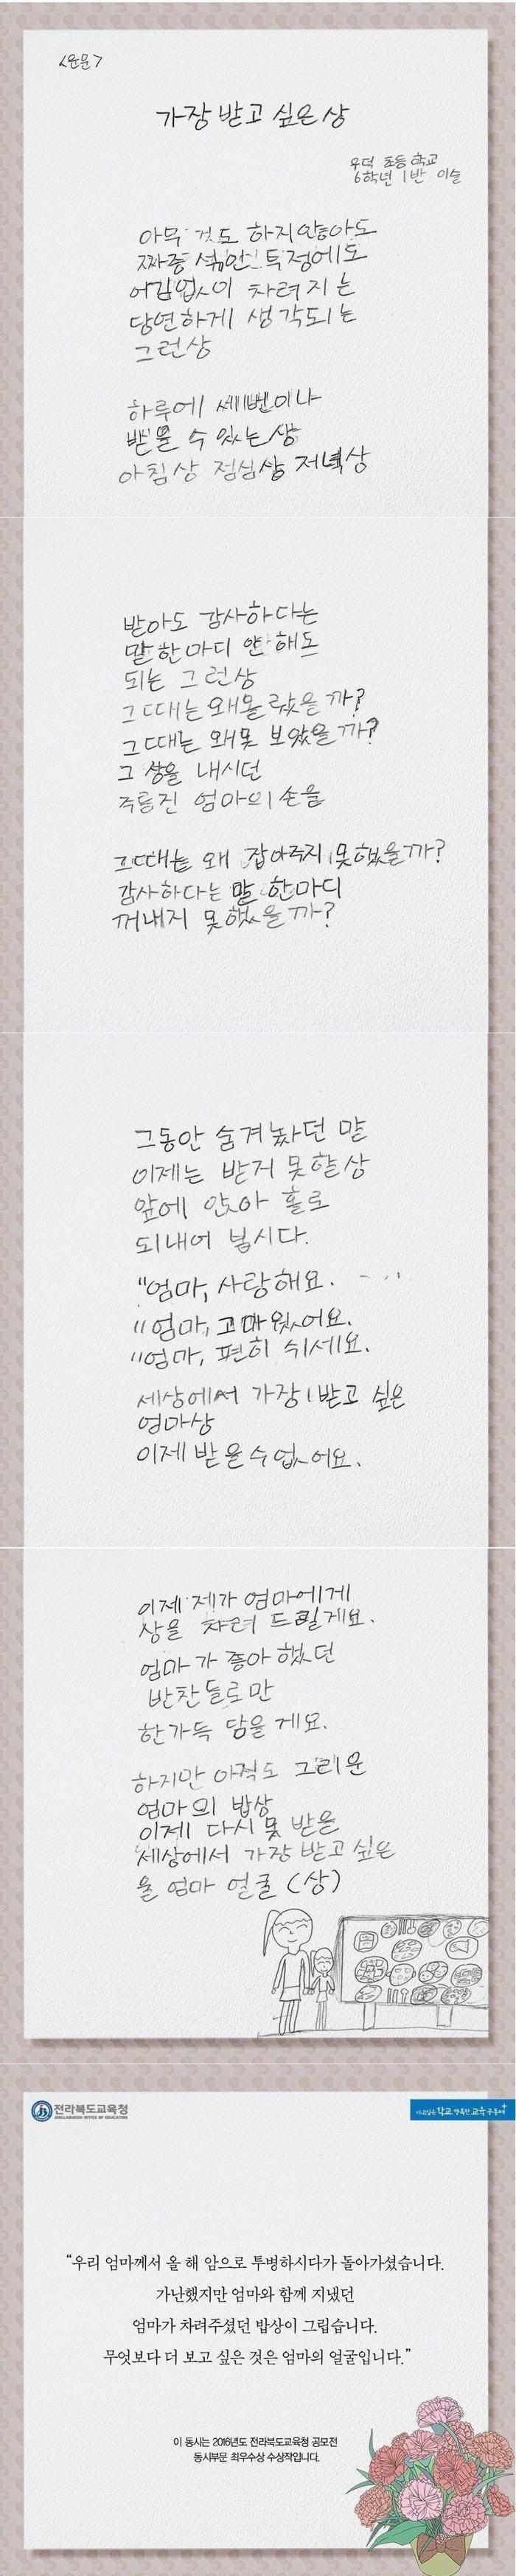 <운문>
가장 받고 싶은 상
우덕 초등학교
6학년 1반 이슬
아무 것도 하지 않아도
짜증 섞인 투정에도
어김없이 차려지는
당연하게 생각되는
그런상
하루에 세번이나
받을 수 있는 상
아침상 점심상 저녁상
받아도 감사하다는
말 한마디 안 해도
되는 그런상
그때는 왜 몰랐을까?
그때는 왜 못 보았을까?
그 상을 내시던
주름진 엄마의 손을
그때는 왜 잡아주지 못했을까?
감사하다는 말 한마디
꺼내지 못했을까?
그동안 숨겨놨던 말
이제는 받지 못할상
앞에 앉아 홀로
되내어 봅시다.
"엄마, 사랑해요.
"엄마, 고마웠어요.
"엄마, 편히 쉬세요.
세상에서 가장 받고 싶은
엄마상
이제 받을수 없어요.
이제 제가 엄마에게
상을 차려 드릴게요.
엄마가 좋아했던
반찬들로만
한가득 담을게요.
하지만 아직도 그리운
엄마의 밥상
이제 다시 못 받을
세상에서 가장 받고 싶은
울 엄마 얼굴 (상)
전라북도교육청
JEOLLABUKDO OFFICE OF EDUCATION
가고싶은 학교 행복한 교육공동체
"우리 엄마께서 올 해 암으로 투병하시다가 돌아가셨습니다.
가난했지만 엄마와 함께 지냈던
엄마가 차려주셨던 밥상이 그립습니다.
무엇보다 더 보고 싶은 것은 엄마의 얼굴입니다."
이 동시는 2016년도 전라북도교육청 공모전
동시부문 최우수상 수상작입니다.